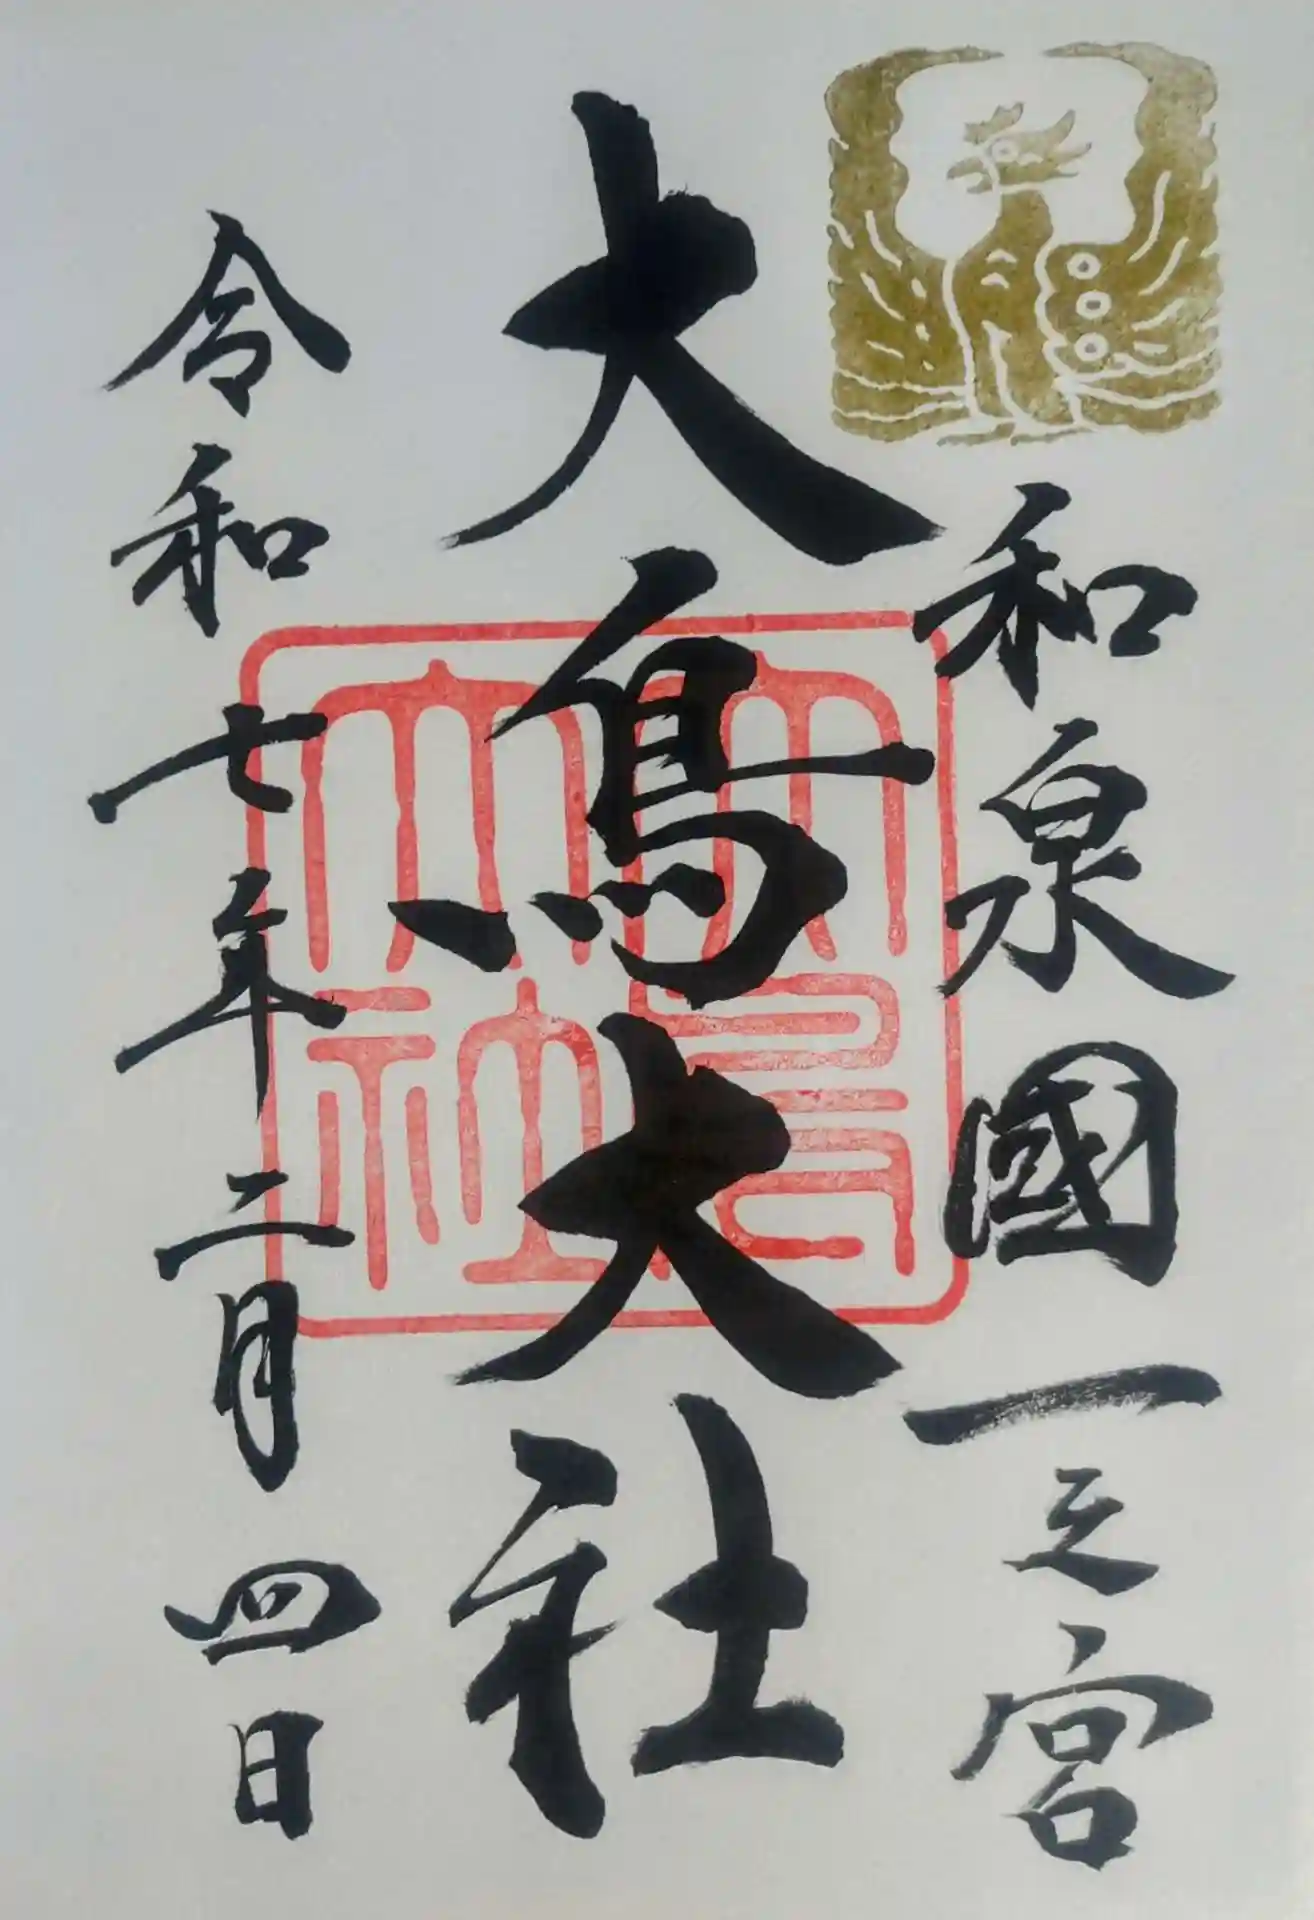 和泉國一之宮
大鳥大社
大鳥大社
令和七年二月四日